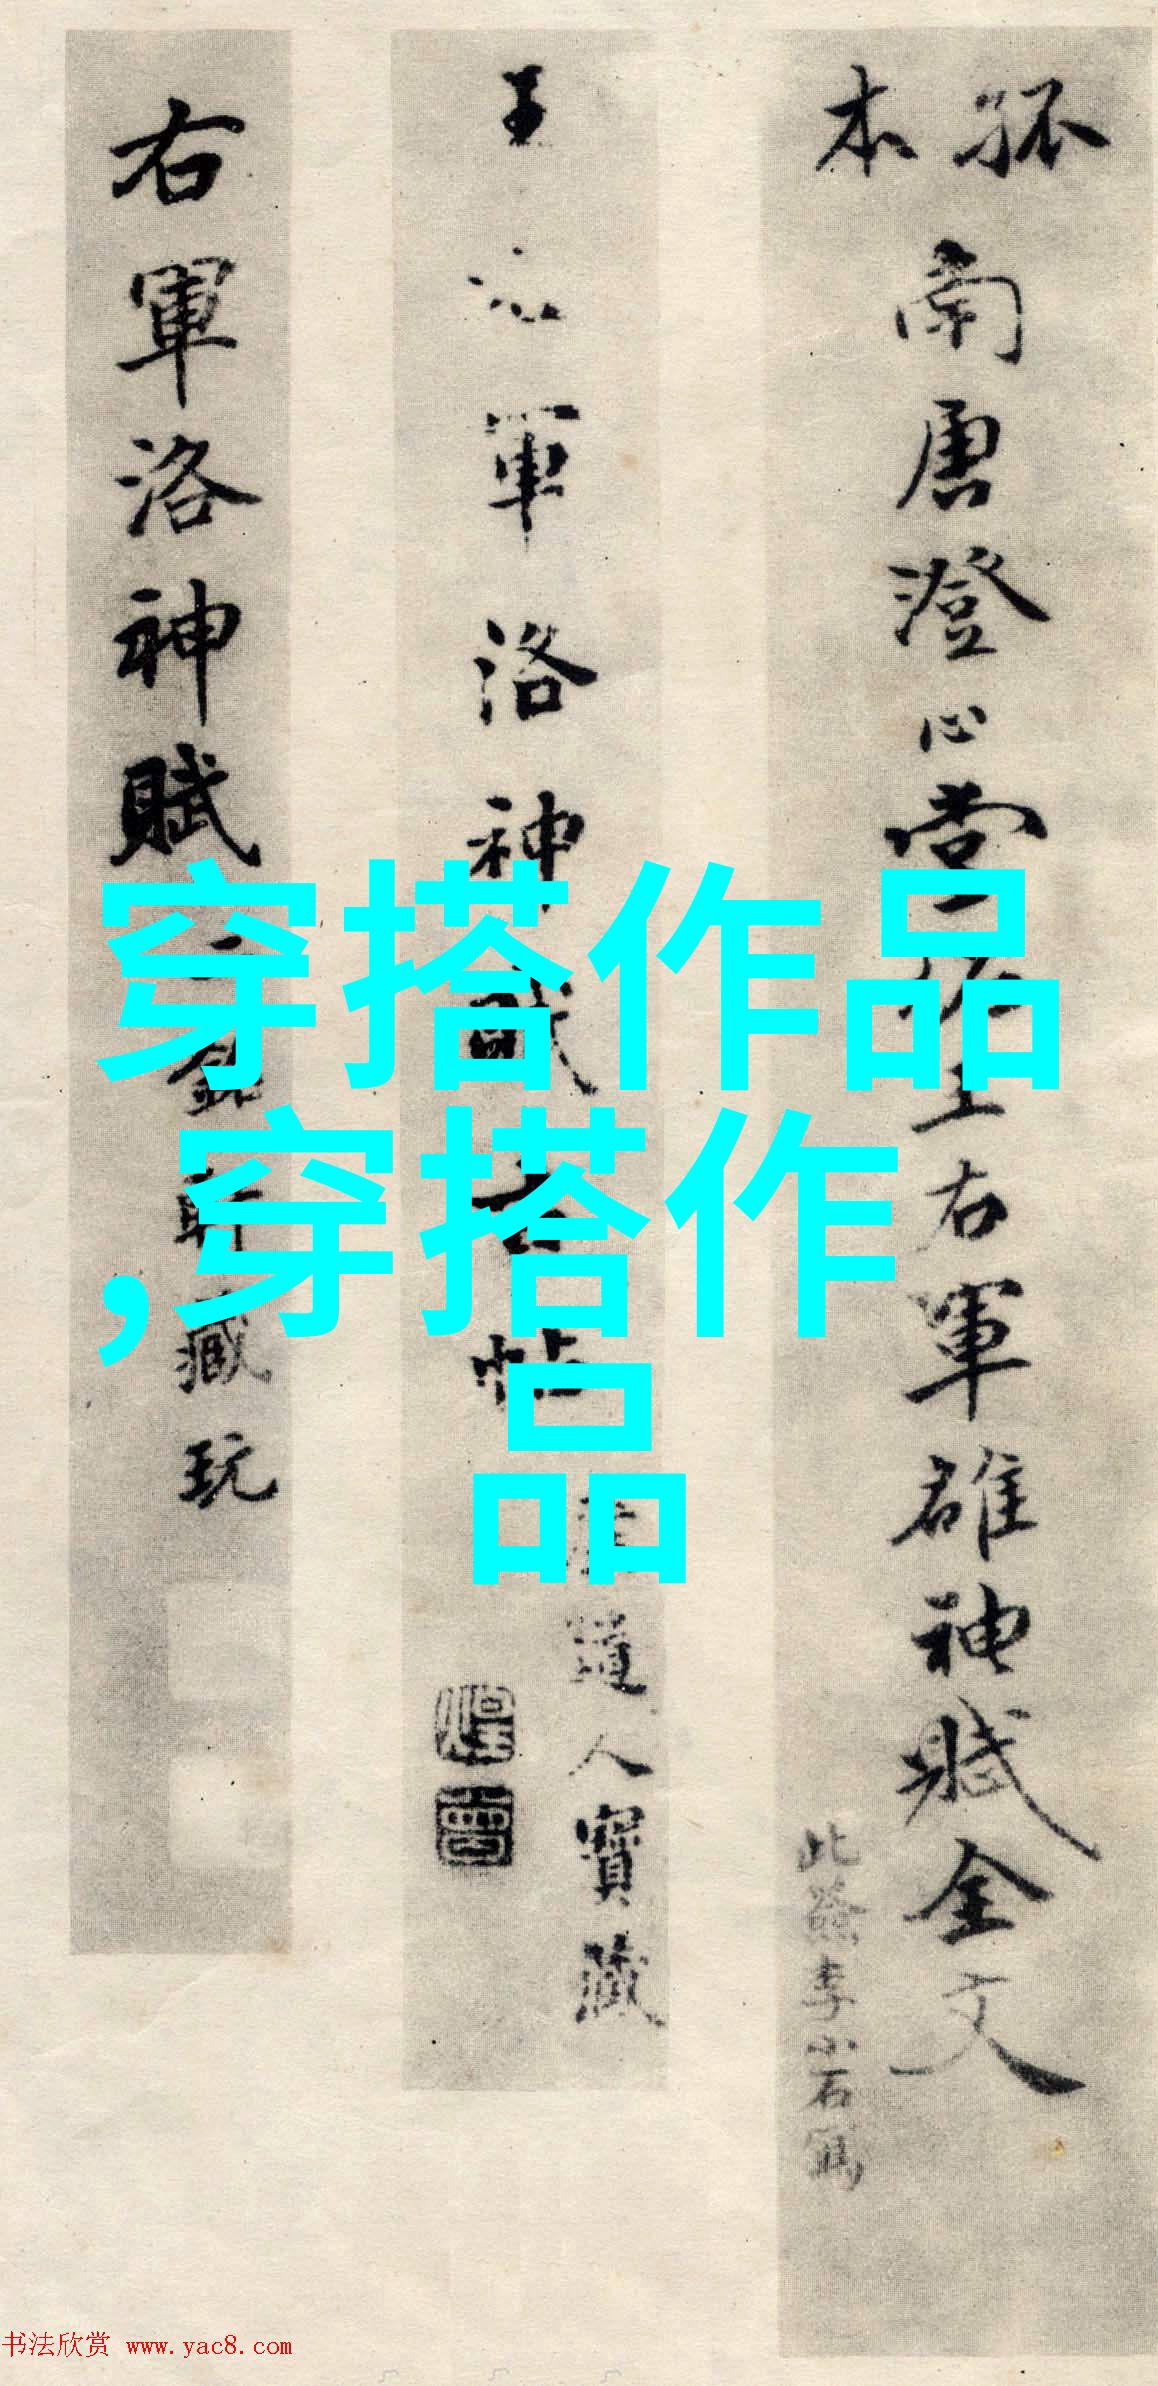 孤本
南唐澄心堂拓王右軍雒神賦全文
此籤李小石寫
王右軍洛神賦
帖
道人寶藏
右軍洛神賦
軒藏玩
穿搭作品
,穿搭作
品
书法欣赏 www.yac8.com